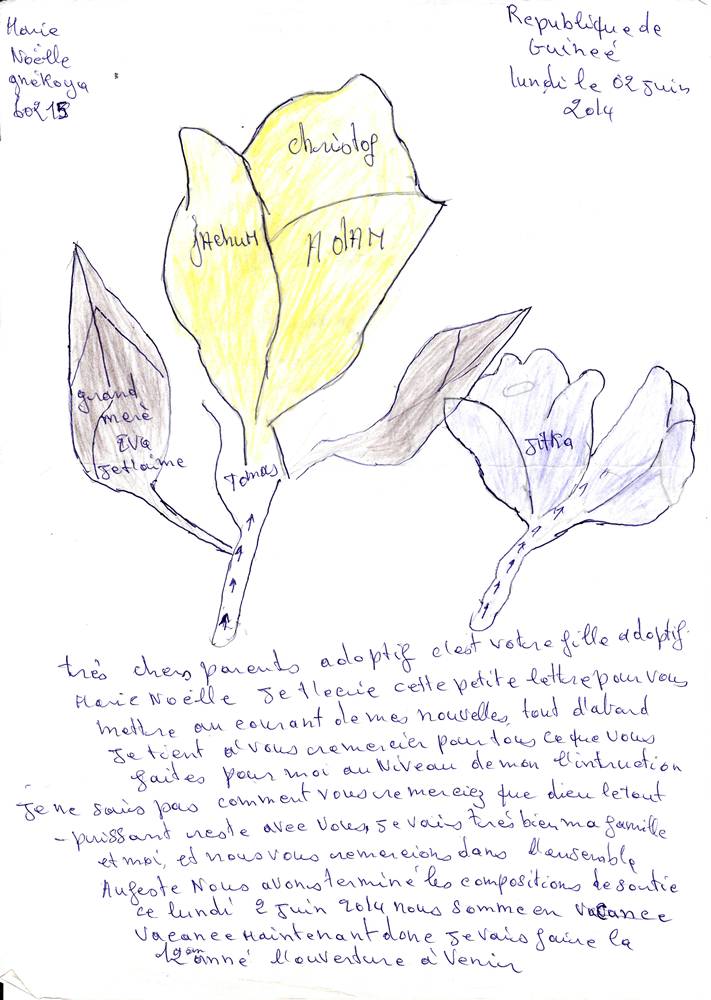 Marie
Noëlle
gnékoya
60215
Republique de
Guineé
lundi le 02 Juin
2014
christof
JAchuM
AdAM
grand
merè
EVa
Jetlaime
Tomas
Jitka
très chers parents adoptif c'est votre fille adoptif.
Marie Noëlle Je t'lecrie cette petite lettre pour vous
mettre au courant de mes nouvelles, tout d'abard
Je tient a' vous remercier pour tous ce que vous
faites pour moi au Niveau de mon l'intruction
Je ne sais pas comment vous remerciez que dieu le tout
-puissant reste avec Vous, Je vais très bien ma famille
et moi, et nous vous remercions dans l'enserable
Au reste Nous avons terminé les compositions de sortie
ce lundi 2 Juin 2014 nous somme en vacance
Vacance Maintenant donc Je vais faire la
12em anné l'ouverture a' Venir